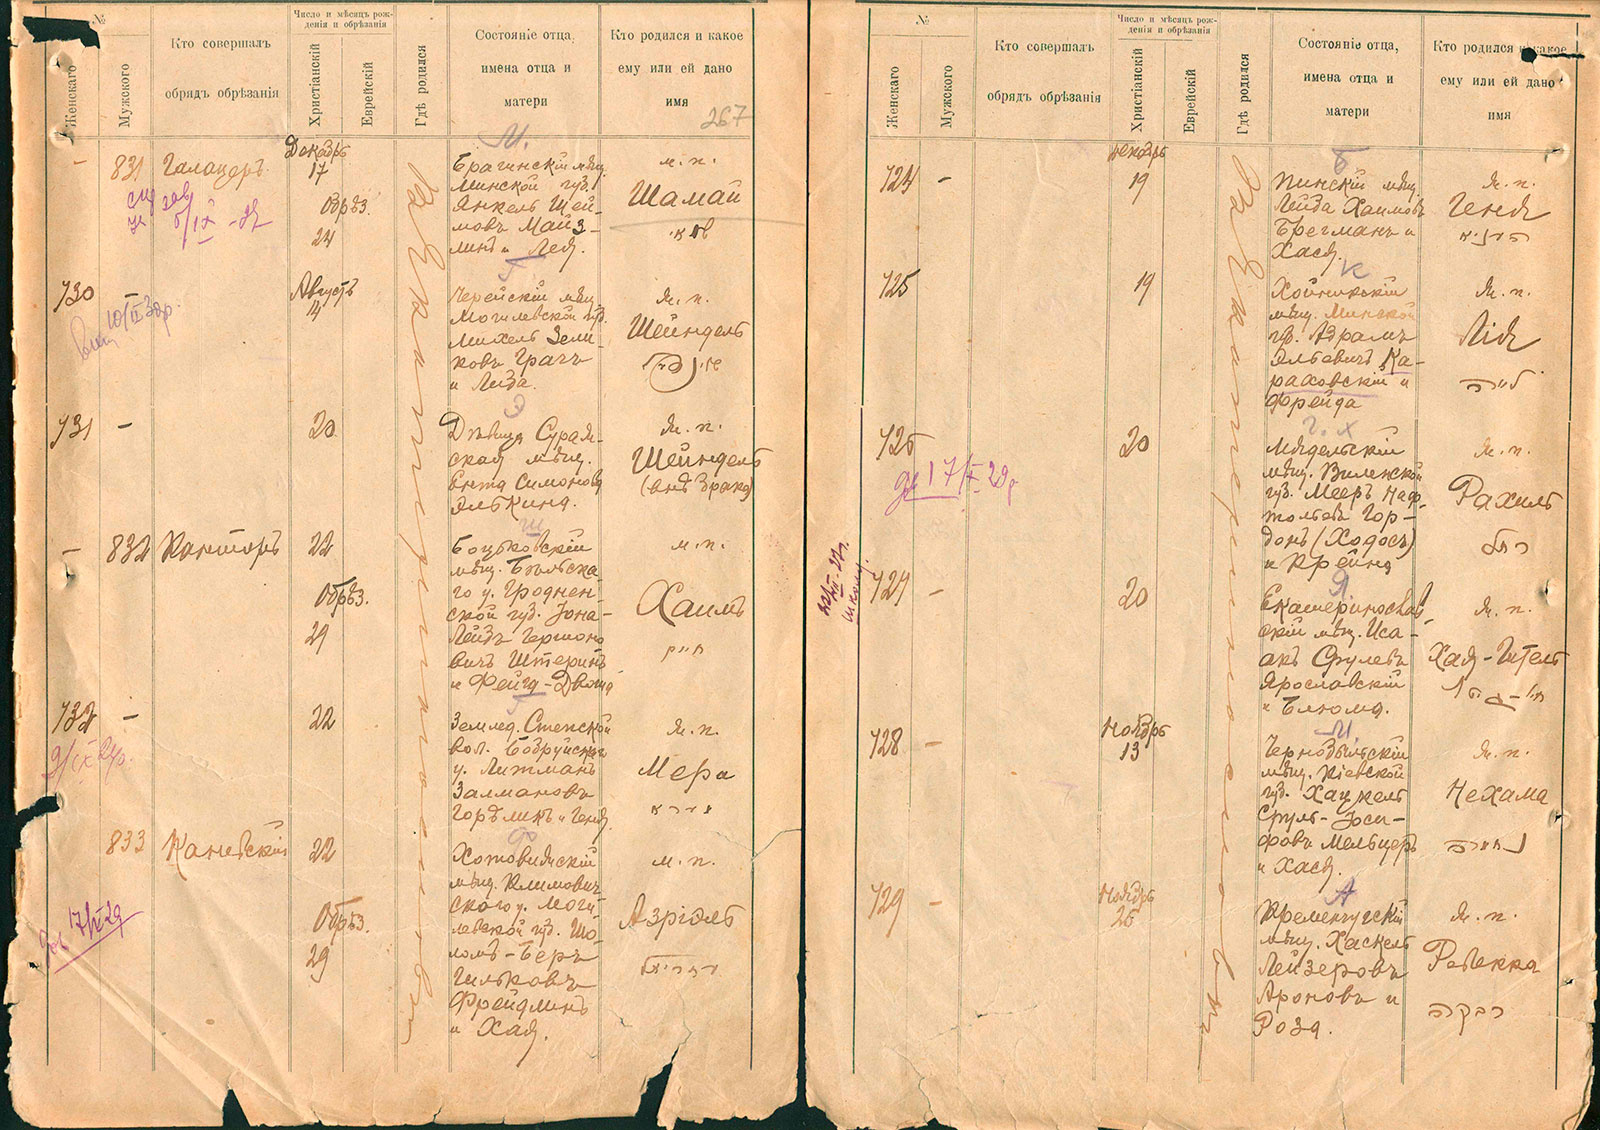 №
Женскаго
Мужского
Кто совершалъ
обрядъ обрѣзанія
Число и мѣсяцъ рож-
денія и обрѣзанія
Христіанскій
Еврейскій
Гдѣ родился
Состояніе отца,
имена отца и
матери
Кто родился и какое
ему или ей дано
имя
267
М.
–
831
Галандеръ.
Декабрь
17
Обрѣз.
24
Брагинскій мѣщ.
Минской губ.
Янкель Шей-
мовъ Майз-
линъ и Лея.
м. п.
Шамай
שמאי
Въ Екатеринославѣ
730
–
10/II 30р.
Августъ
14
Г
Черейскій мѣщ.
Могилевской губ.
Михель Зели-
ковъ Грачъ
и Лиза.
ж. п.
Шейндель
731
–
20
Э
Дѣвица Сураж-
ская мѣщ.
Ента Симонова
Элькина.
ж. п.
Шейндель
(внѣ брака)
–
832
Канторъ
22
Обрѣз.
29
Ш
Боцьковскій
мѣщ. Бѣльска-
го у. Гроднен-
ской губ. Іона-
Лейзъ Гершоно
вичъ Штеринъ
и Фейга-Двойра
м. п.
Хаимъ
חיים
732
–
9/IX 24р.
22
Г
Землед. Степской
вол. Бобруйскаго
у. Литманъ
Залмановъ
Горѣликъ и Геня.
ж. п.
Мера
מירא
833
Каневскій
17/IX 29
22
Обрѣз.
29
Ф
Хотовижскій
мѣщ. Климович
скаго у. Моги-
левской губ. Шо-
ломъ-Беръ
Гильковъ
Фрейдлинъ
и Хая.
м. п.
Азріэль
עזריאל
№
Женскаго
Мужского
Кто совершалъ
обрядъ обрѣзанія
Число и мѣсяцъ рож-
денія и обрѣзанія
Христіанскій
Еврейскій
Гдѣ родился
Состояніе отца,
имена отца и
матери
Кто родился и какое
ему или ей дано
имя
724
–
Декабрь
19
Б
Пинскій мѣщ.
Лейба Хаимовъ
Брегманъ и
Хася.
ж. п.
Геня
Въ Екатеринославѣ
725
19
К
Хойникскій
мѣщ. Минской
гб. Абрамъ
Эльевичъ Ка-
раховскій и
Фрейда
ж. п.
Лія
לאה
726
17/IX 29р
20
Г. Х
Мядельскій
мѣщ. Виленской
губ. Мееръ Наф-
тольевъ Гор-
донъ (Ходосъ)
и Крейна
ж. п.
Рахиль
רחל
727
–
школу
20
Я
Екатеринослав
скій мѣщ. Иса-
акъ Срулевъ
Ярославскій
и Блюма.
ж. п.
Хая-Гитель
728
–
Ноябрь
13
М.
Чернобыльскій
мѣщ. Кіевской
губ. Хацкель
Сруль-Іоси-
фовъ Мельцеръ
и Хася.
ж. п.
Нехама
נחמה
729
–
Ноябрь
26
А
Кременчугскій
мѣщ. Хаскель
Лейзеровъ
Ароновъ и
Роза.
ж. п.
Ревекка
רבקה